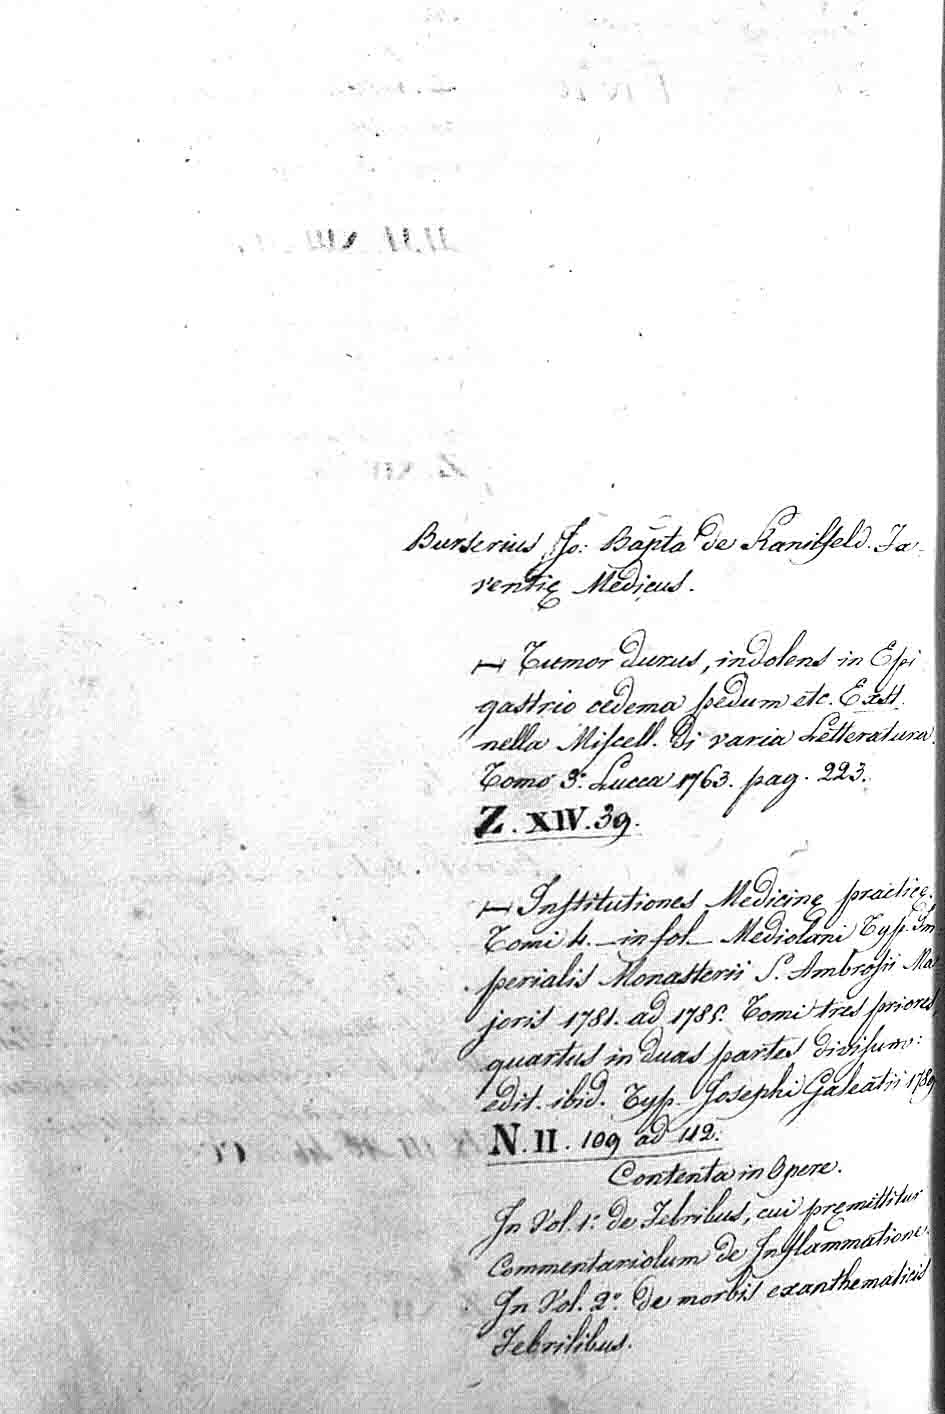 Burserius Jo: Bapta de Kanilfeld. Fa-
ventię Medicus.
— Tumor durus, indolens in Epi
gastrio oedema pedum etc. Exst.
nella Miscell. di varia Letteratura.
Tomo 3.º Lucca 1763. pag. 223.
Z. XIV. 39.
— Institutiones Medicinę practicę.
Tomi 4. in fol. Mediolani Typ. Im
perialis Monasterii S. Ambrosii Ma
joris 1781. ad 1785. Tomi tres priores,
quartus in duas partes divisum:
edit. ibid. Typ. Josephi Galeatii 1789
N. II. 109 ad 112.
Contenta in Opere.
In Vol. 1.º de Febribus, cui pręmittitur
Commentariolum de Inflammatione.
In Vol. 2.º de morbis exanthematicis
Febrilibus.